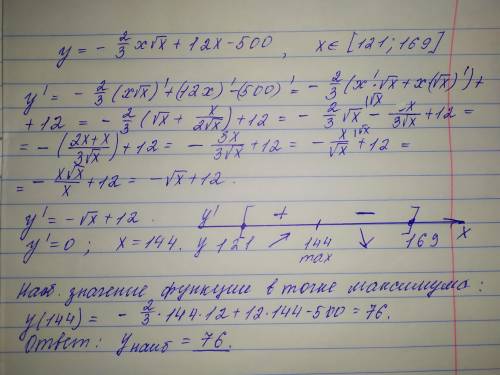 y = - 2/3 x√x + 12x - 500 , x∈ [121; 169]
y' = - 2/3 (x√x)' + (12x)' - (500)' = - 2/3 (x'·√x + x(√x)') +
+ 12 = - 2/3 (√x + x/(2√x)) + 12 = - 2/3 √x - x/(3√x) + 12 =
= - ((2x + x)/(3√x)) + 12 = - 3x/(3√x) + 12 = - x/√x + 12 =
= - x√x/x + 12 = - √x + 12 .
y' = - √x + 12 . y' [ + - ]
y' = 0 ; x = 144. y 121 ↗ 144 ↘ 169 x
max
Наиб. значение функции в точке максимума :
y(144) = - 2/3 · 144 · 12 + 12 · 144 - 500 = 76.
Ответ: yнаиб = 76.